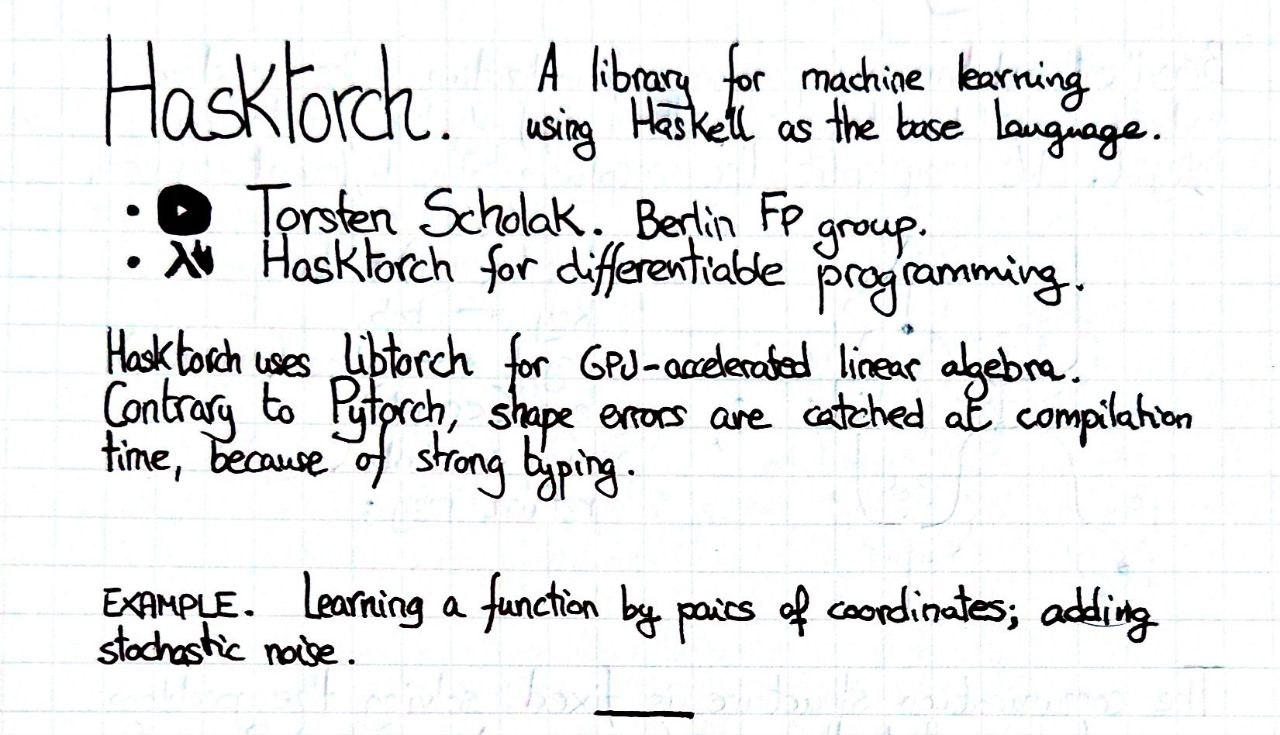 Hasktorch. A library for machine learning
using Haskell as the base language.
• Torsten Scholak. Berlin FP group.
• λ Hasktorch for differentiable programming.
Hasktorch uses libtorch for GPU-accelerated linear algebra.
Contrary to Pytorch, shape errors are catched at compilation
time, because of strong typing.
EXAMPLE. Learning a function by pairs of coordinates; adding
stochastic noise.